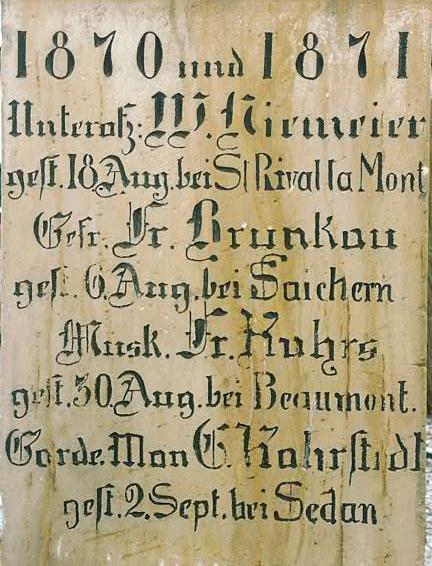 1870 und 1871
Unterofz: W. Niemeier
gest. 18 Aug. bei St Rival la Mont
Gefr. Fr. Brunkau
gest. 6. Aug. bei Saichern
Musk. Fr. Kuhrs
gest. 30. Aug. bei Beaumont.
Garde. Man C. Rohrstedt
gest. 2. Sept. bei Sedan